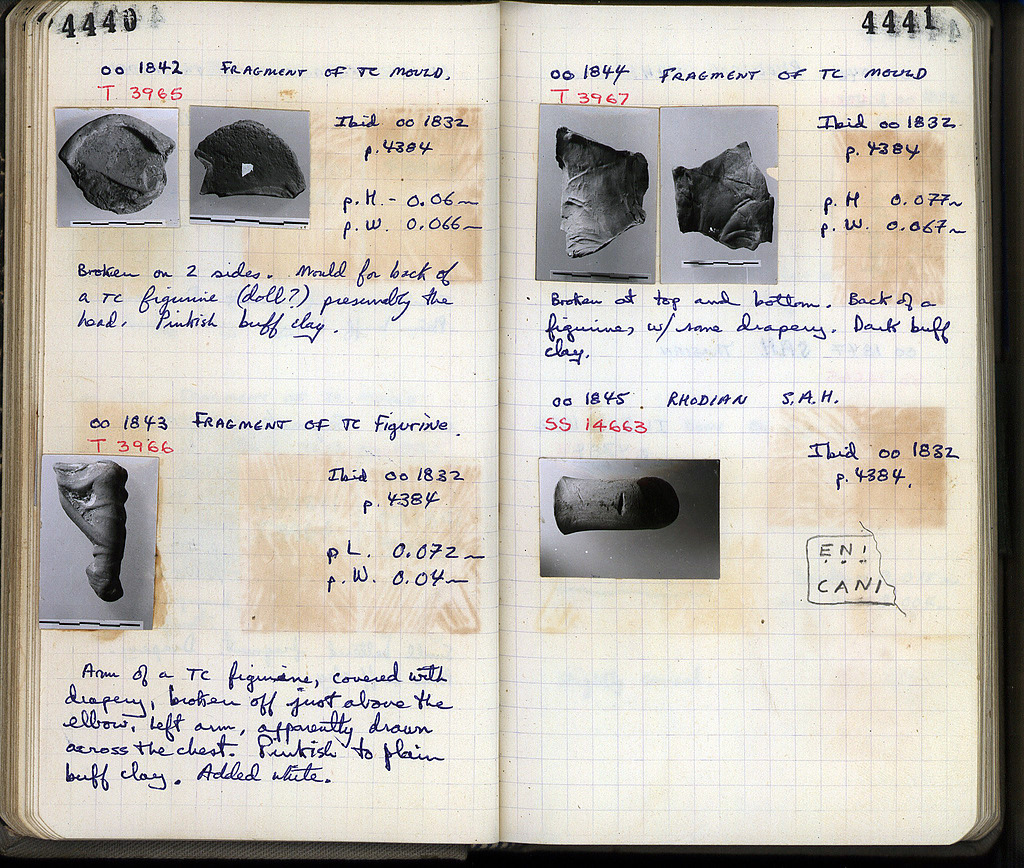 4440
οο 1842 FRAGMENT OF TC MOULD.
T 3965
Ibid οο 1832
p. 4384
p. H. - 0.06 m
p. W. 0.066 m
Broken on 2 sides. Mould for back of
a TC figurine (doll?) presumably the
head. Pinkish buff clay.
οο 1843 FRAGMENT OF TC Figurine.
T 3966
Ibid οο 1832
p. 4384
p L. 0.072 m
p. W. 0.04 m
Arm of a TC figurine, covered with
drapery, broken off just above the
elbow, left arm, apparently drawn
across the chest. Pinkish to plain
buff clay. Added white.
4441
οο 1844 FRAGMENT OF TC MOULD
T 3967
Ibid οο 1832
p. 4384
p. H 0.077 m
p. W. 0.067 m
Broken at top and bottom. Back of a
figurine, w/ some drapery. Dark buff
clay.
οο 1845 RHODIAN S.A.H.
SS 14663
Ibid οο 1832
p. 4384.
ENI
CANI